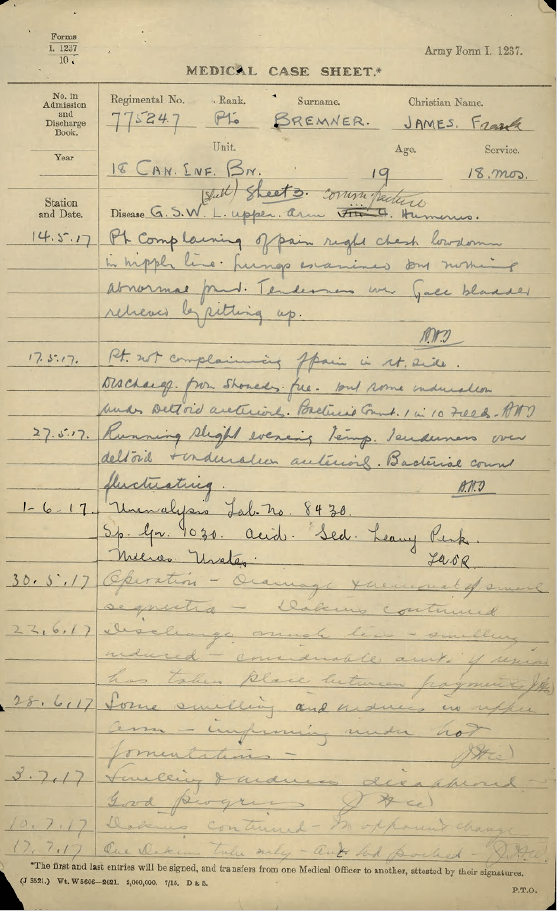 Forms
I. 1237
10
Army Form I. 1237.
MEDICAL CASE SHEET.*
No. in Admission and Discharge Book.
Year
Regimental No. Rank. Surname. Christian Name.
775247 Pte BREMNER. JAMES. Frank
Unit. Age. Service.
18 CAN. INF. BN. 19 18. mos.
Station and Date.
(Shell) Sheet 3. comm. fracture
Disease G.S.W. L. upper. arm Humerus.
14.5.17 Pt complaining of pain right chest low down
in nipple line. Lungs examined but nothing
abnormal found. Tenderness over Gall bladder
relieved by sitting up.
17.5.17. Pt. not complaining of pain in rt. side.
Discharge from Shoulder free. but some induration
under Deltoid anteriorly. Bacterial Count. 1 in 10 Fields.
27.5.17. Running slight evening Temp. Tenderness over
deltoid + induration anteriorly. Bacterial count
fluctuating.
1-6-17 Urinalysis Lab. No. 8430.
Sp. Gr. 1030. acid. Sed. Heavy Pink.
Micros Urates.
30.5.17 Operation - Drainage & removal of small
sequestra - Dakins continued
22.6.17 Discharge much less - swelling
reduced - considerable amt. of union
has taken place between fragments
28.6.17 Some swelling and redness in upper
arm - improving under hot
fomentations -
3.7.17 Swelling & redness disappeared -
Good progress
10.7.17 Dakins continued - No apparent change
17.7.17 One Dakins tube only - packed -
*The first and last entries will be signed, and transfers from one Medical Officer to another, attested by their signatures.
(J 5521.) Wt. W5606-2621. 5,000,000. 7/15. D & S.
P.T.O.